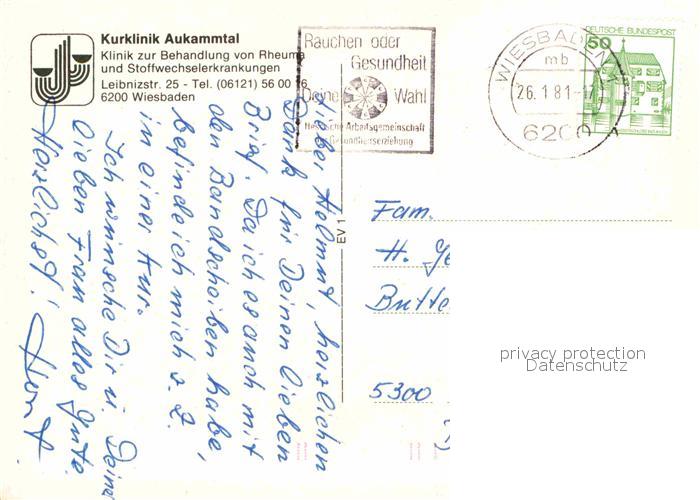 Kurklinik Aukammtal
Klinik zur Behandlung von Rheuma
und Stoffwechselerkrankungen
Leibnizstr. 25 - Tel. (06121) 56 00 16
6200 Wiesbaden
Rauchen oder
Gesundheit
Deine Wahl
Hessische Arbeitsgemeinschaft
Gesundheitserziehung
WIESBADEN
mb
26.1.81-17
6200
DEUTSCHE BUNDESPOST
50
Lieber Helmut, herzlichen
Dank für Deinen lieben
Brief. Da ich es auch mit
den Bandscheiben habe,
befinde ich mich z. Z.
in einer Kur.
Ich wünsche Dir u. Deiner
lieben Frau alles Gute
Herzlichst!
EV 1
Fam.
H. Ge
Butte
5300
privacy protection
Datenschutz